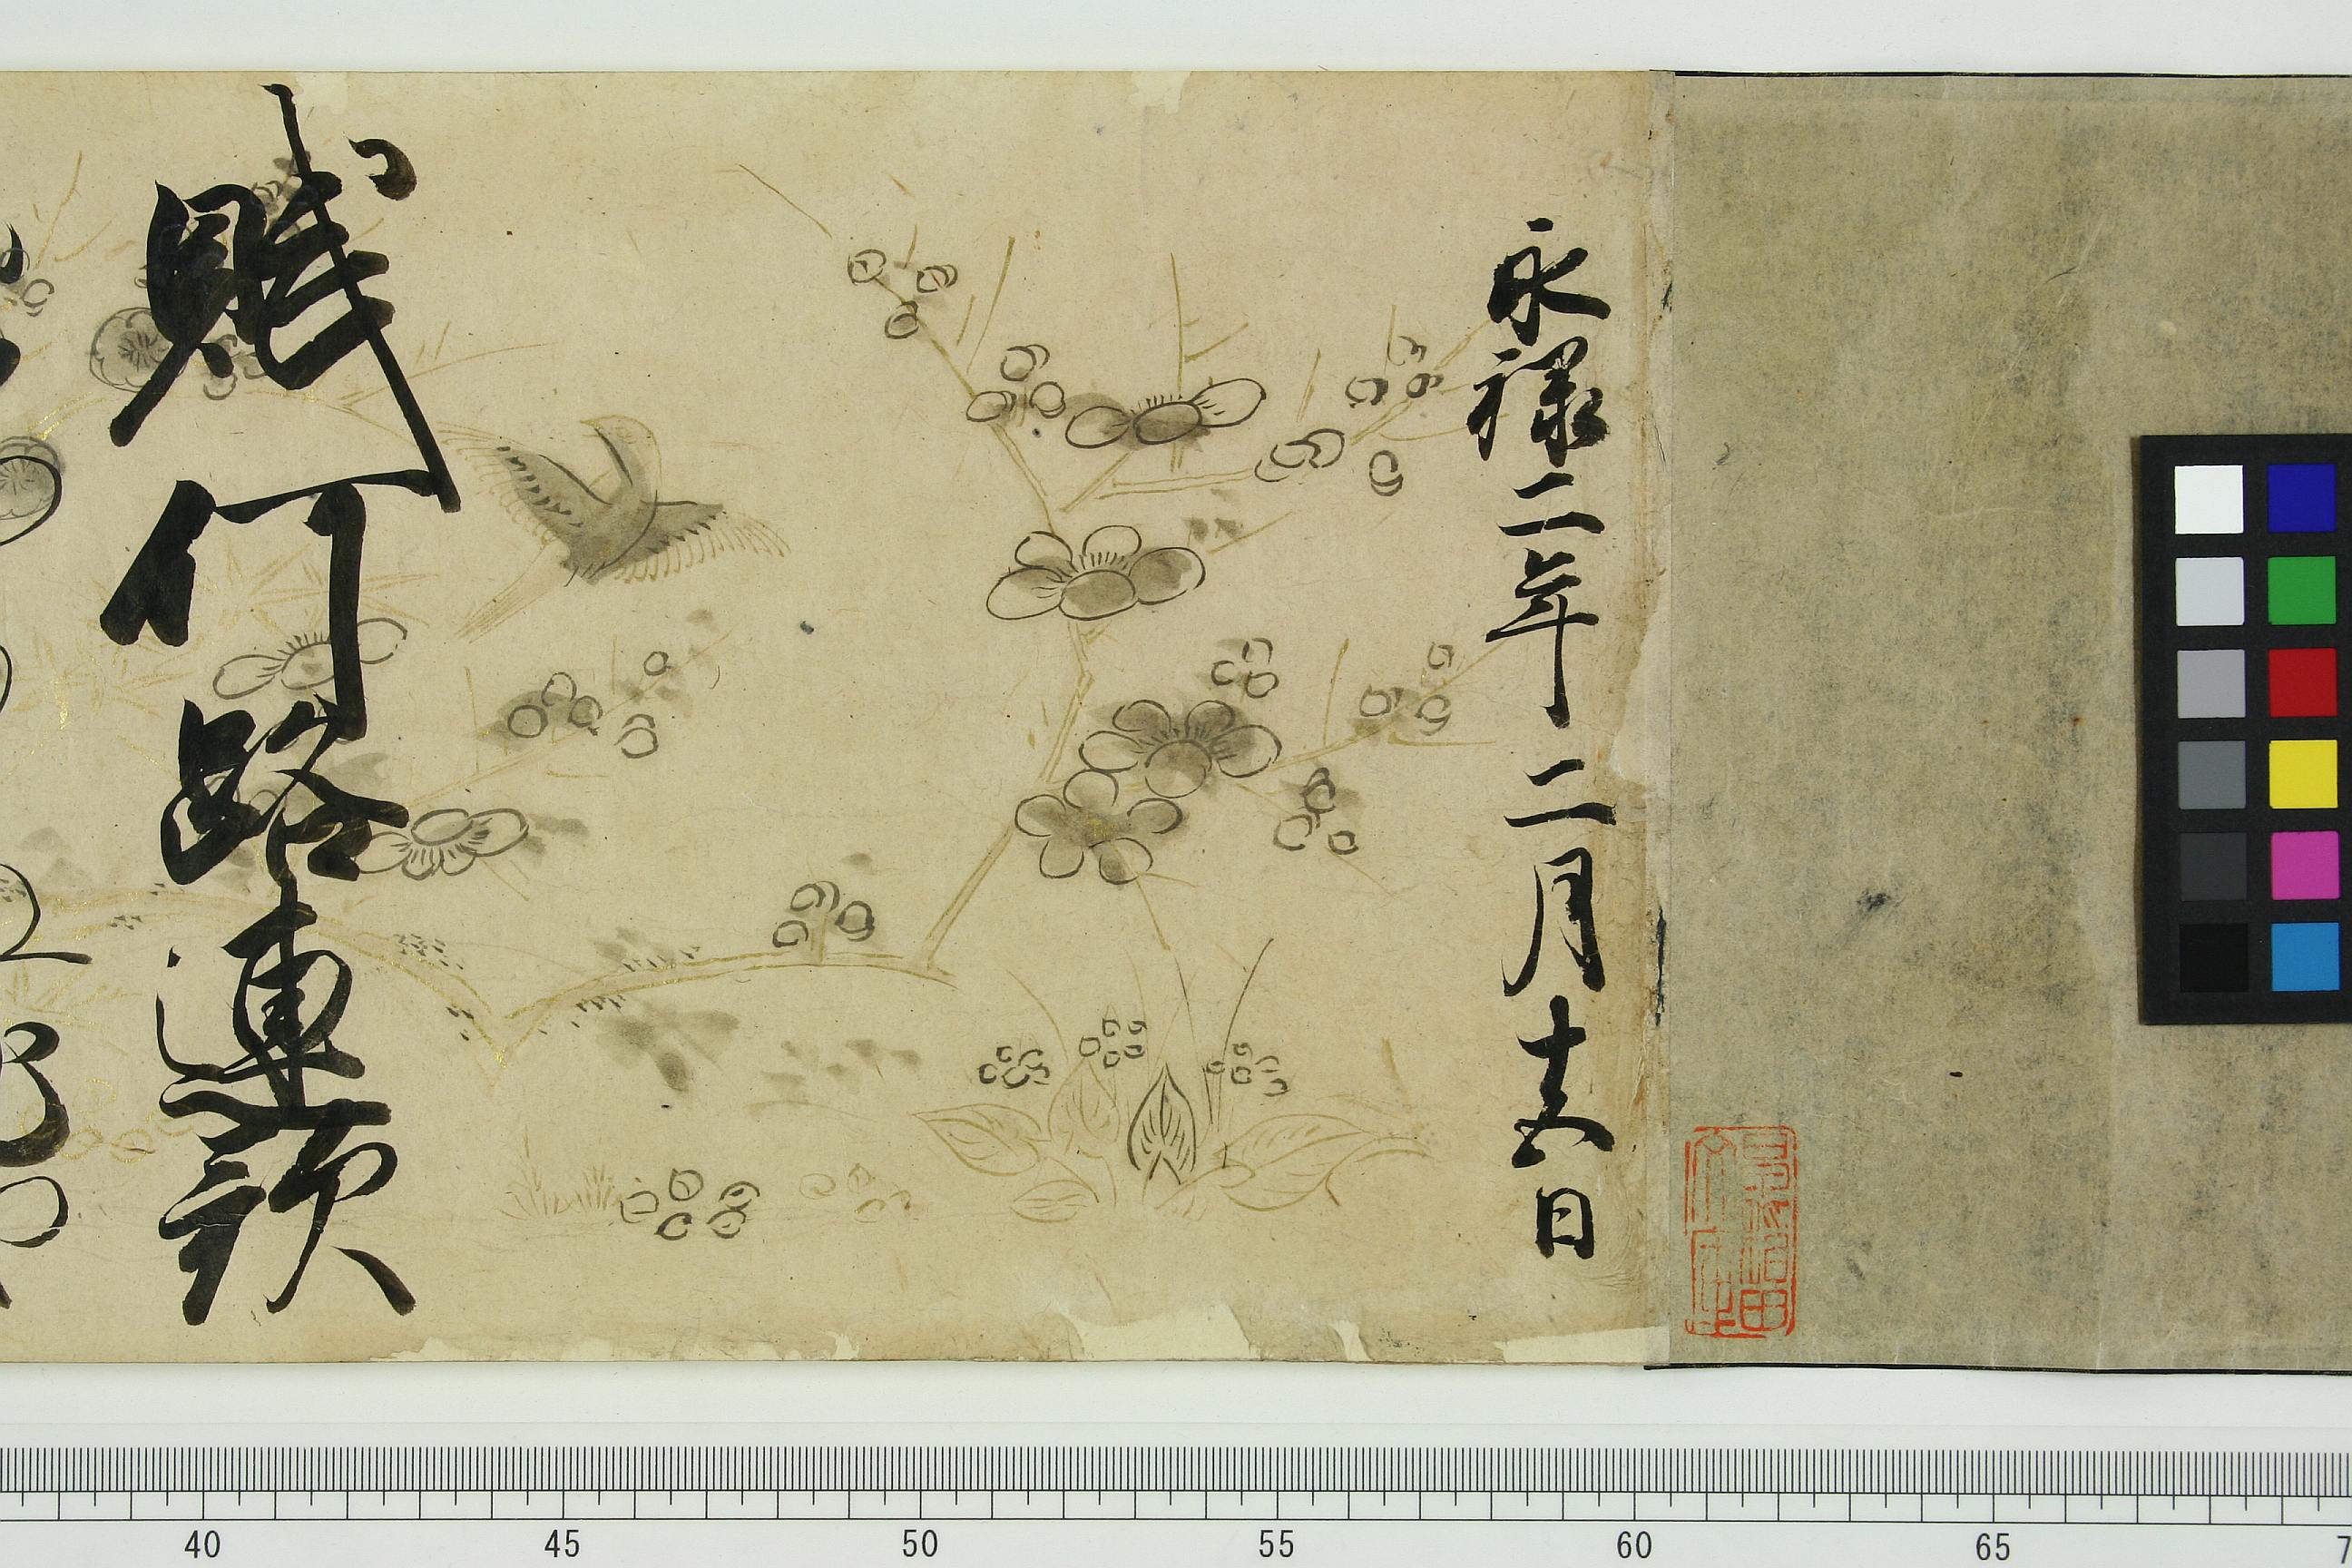 永禄二年二月十五日
賦何路連歌
40 45 50 55 60 65